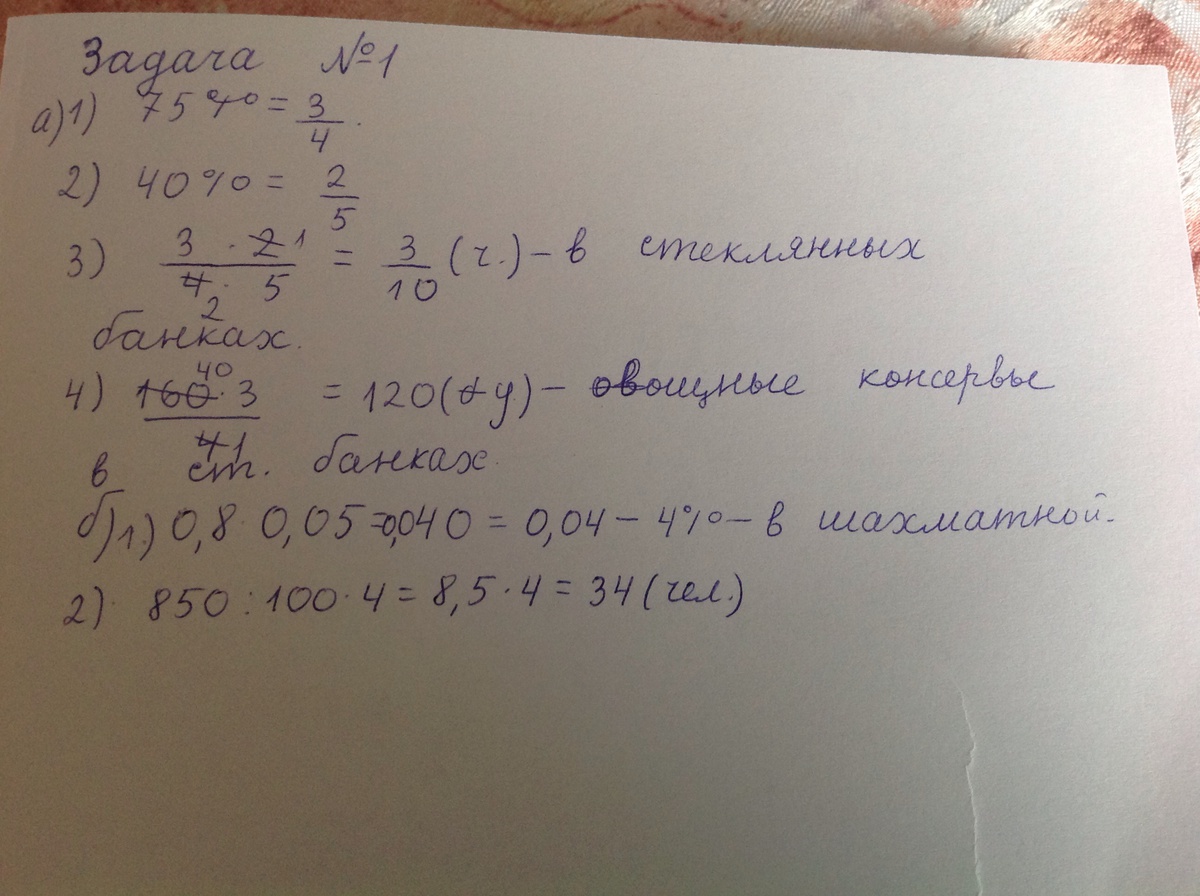 Задача №1
а)1) 75% = 3/4.
2) 40% = 2/5
3) 3 · 2 1 / 4 · 5 2 = 3/10 (ч.) – в стеклянных
банках.
4) 160 40 · 3 / 4 1 = 120 (ту) – овощные консервы
в ст. банках
б)1.) 0,8 · 0,05 = 0,040 = 0,04 – 4% – в шахматной.
2) 850 : 100 · 4 = 8,5 · 4 = 34 (чел.)